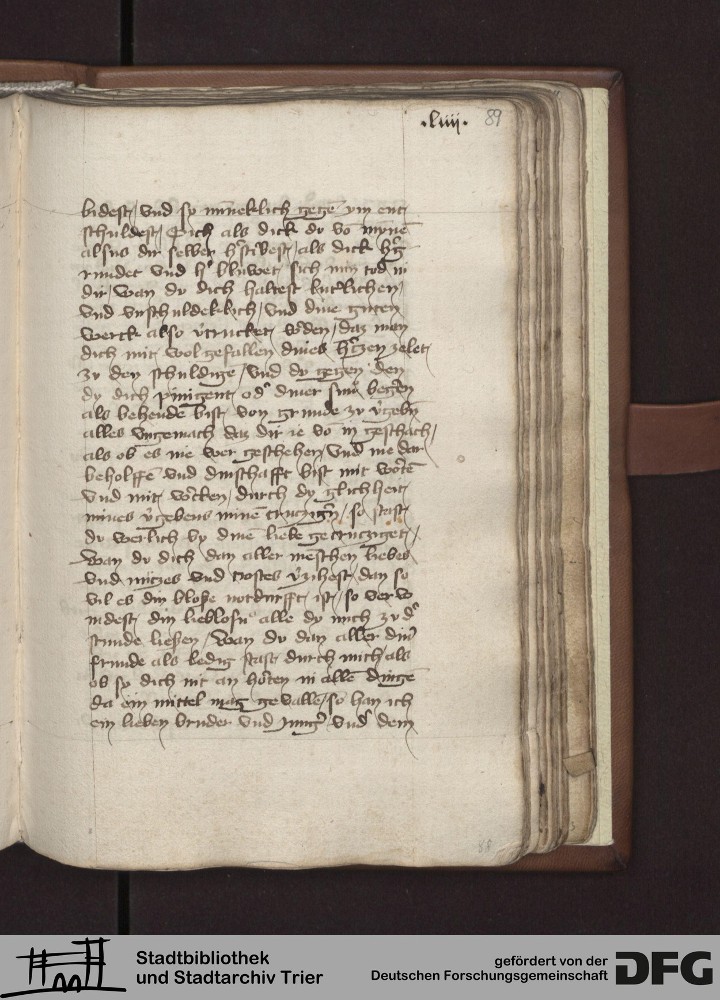 .liiij. 89
bidest / vnd sy mīneklich gegē ym ent
schuldest / Sich als dick dv vō mynē
alsus dir selber h'stirbest / als dick h'g
rundet vnd h'bluwet sich min tod in
dir / wan dv dich haltest luterlichen
vnd vnschuldeklich / vnd dine guten
werck also v'trucket w'den / daz man
dich mit wolgefallen dines h'tzen zelet
zv den schuldige / vnd dv gegen den
dy dich pinigent od' diner sint beg'en
als behende bist von grunde zv v'gebn
alles vngemach daz dir ie vō in geschach /
als ob es nie wer geschehen / vnd me dar
beholffē vnd dinschafft bist mit wortē
vnd mit w'cken / durch dy glichheit
mines v'gebens minē crutzig'n / so stast
dv werlich by dine liebe gecrutziget /
Wan dv dich dan aller meschen liebes
vnd nutzes vnd trostes v'zihest / dan so
vil es din bloße notdurfft ist / so verw
indest din lieblosn alle dy mich zv d'
stunde ließen / Wan dv dan aller din'
frunde als ledig stast durch mich / als
ob sy dich nit an horten in allē dingē
da ein mittel mag gevalle / so han ich
ein lieben bruder vnd jung' vnd' dem
88
Stadtbibliothek
und Stadtarchiv Trier
gefördert von der
Deutschen Forschungsgemeinschaft
DFG